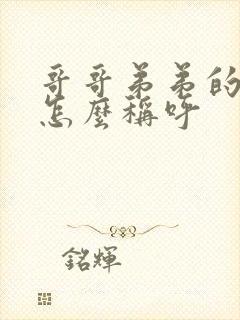 哥哥弟弟的
怎麼稱呼
銘輝